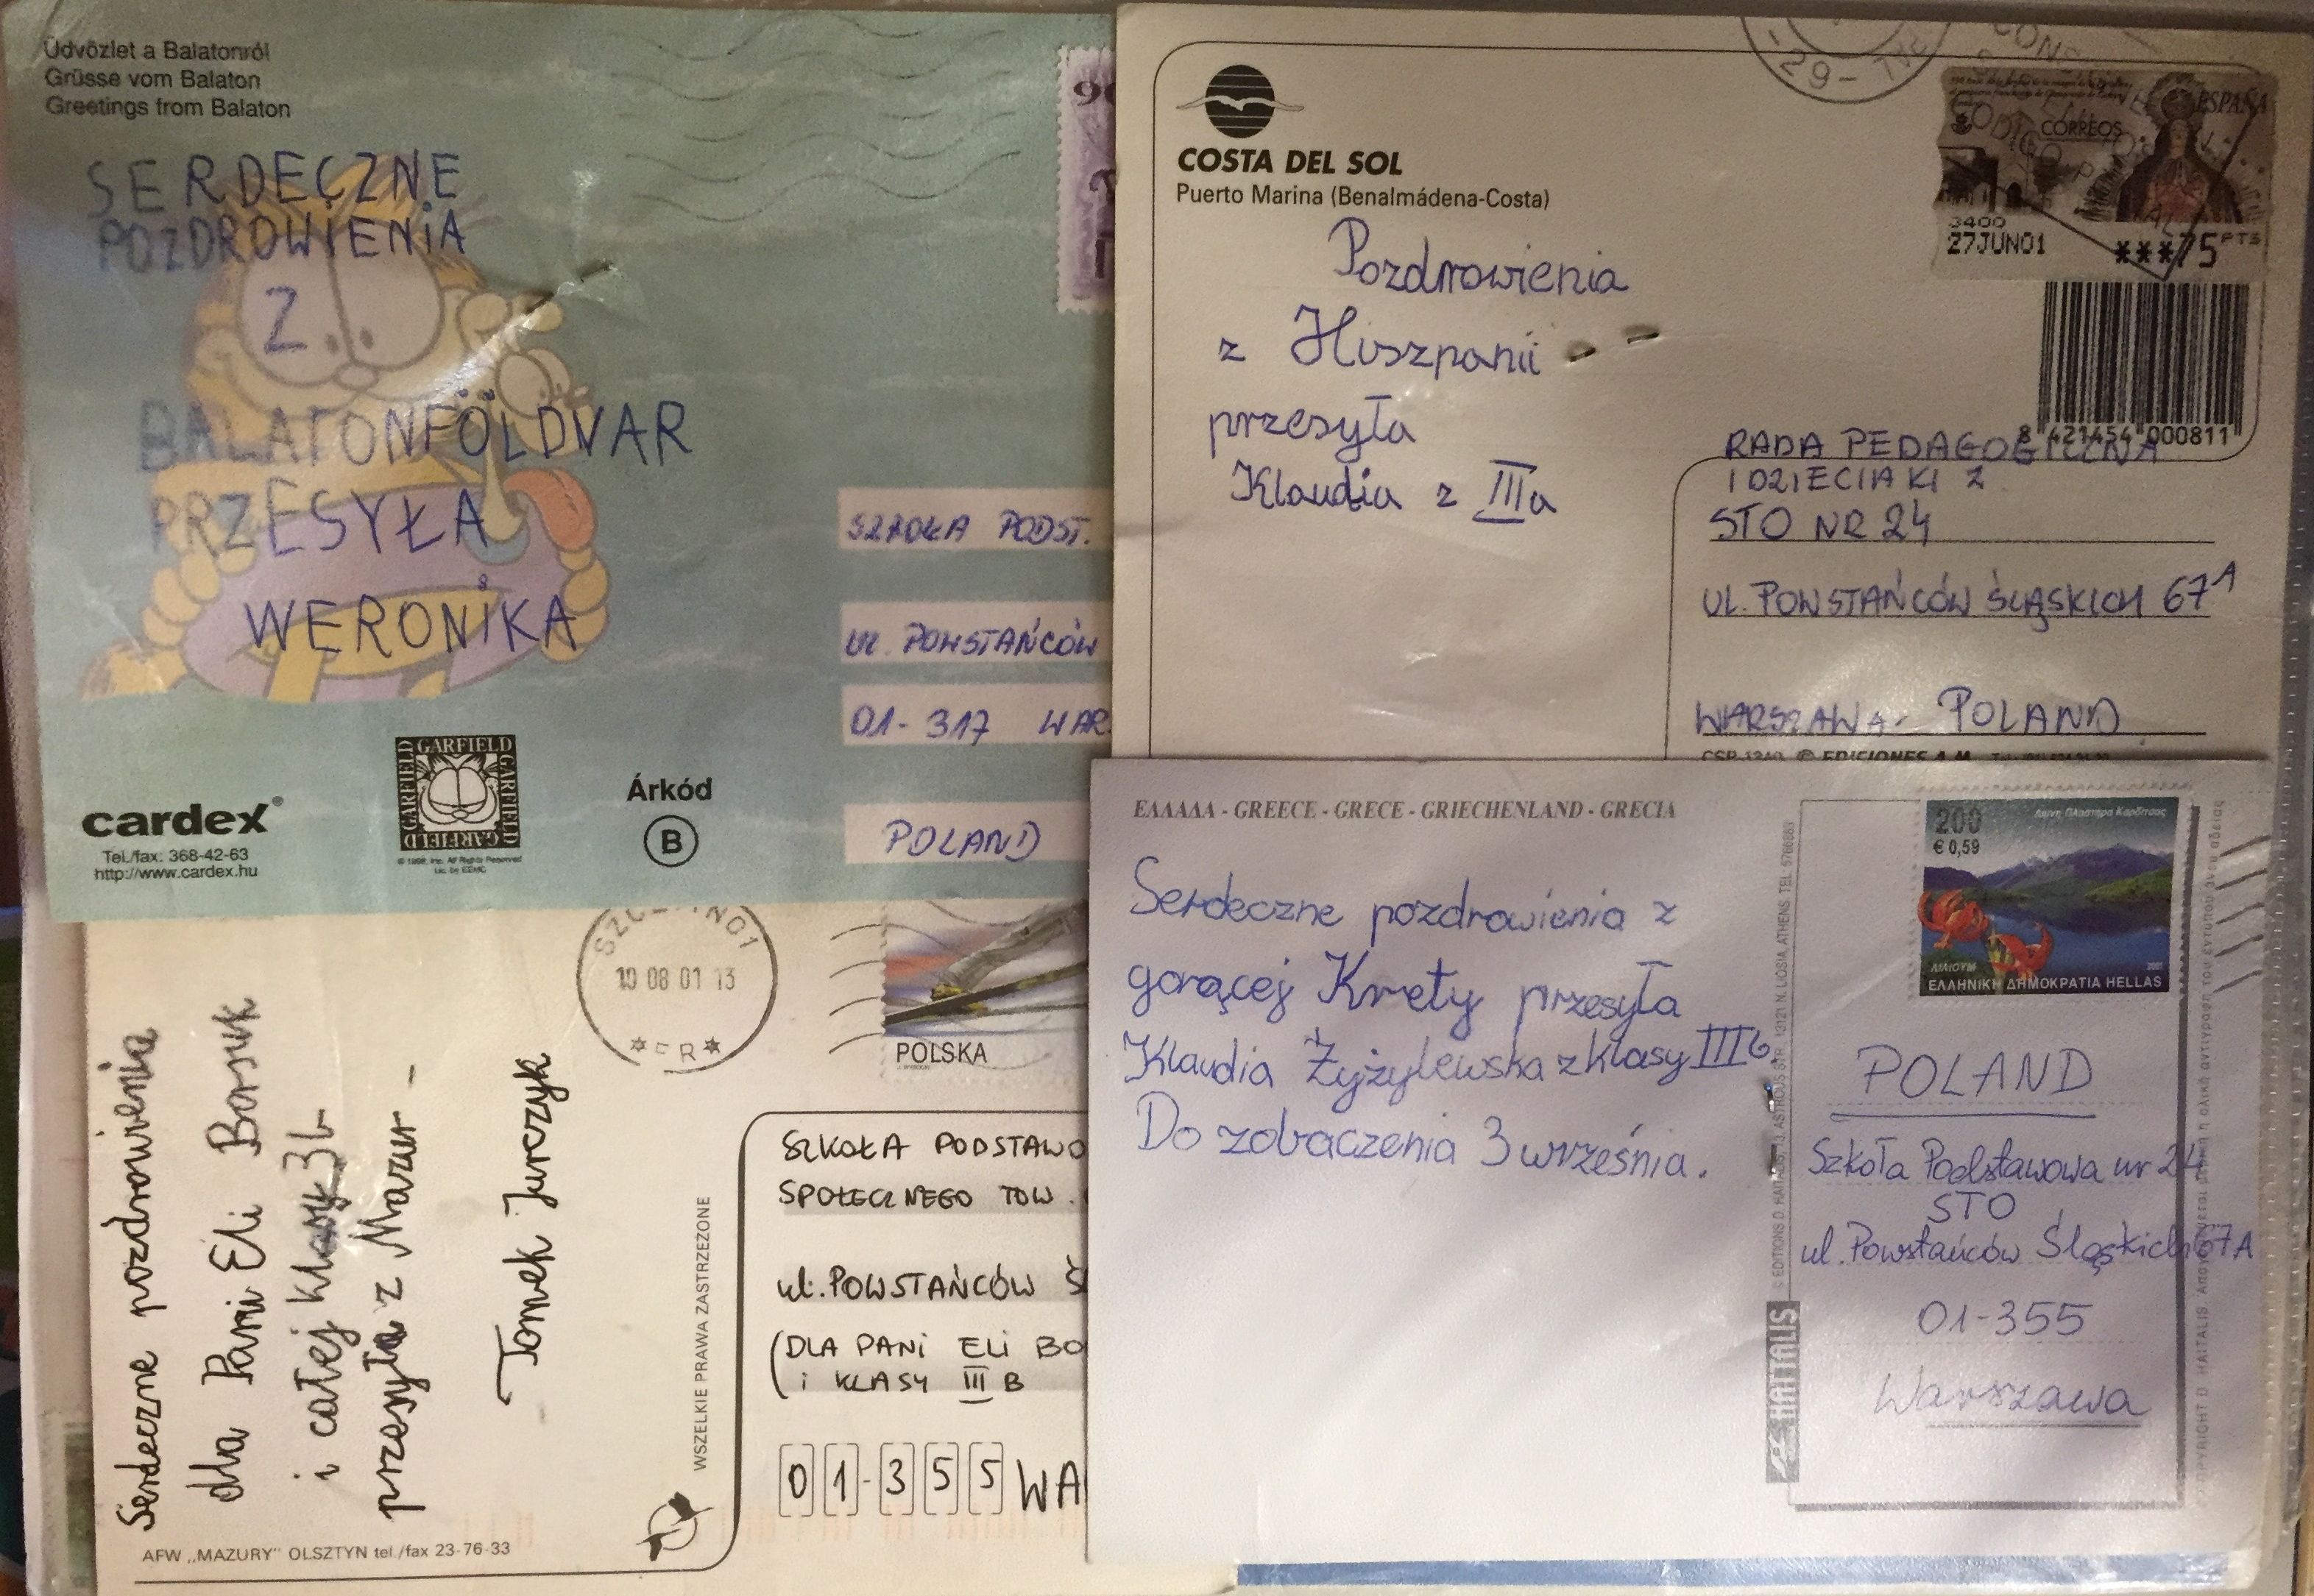 Üdvözlet a Balatonról
Grüsse vom Balaton
Greetings from Balaton
SERDECZNE
POZDROWIENIA
Z
BALATONFÖLDVAR
PRZESYŁA
WERONIKA
SZKOŁA PODST.
UL. POWSTAŃCÓW
01-317 WAR.
POLAND
cardex®
Tel./fax: 368-42-63
http://www.cardex.hu
GARFIELD
GARFIELD
GARFIELD
GARFIELD
Árkód
B
COSTA DEL SOL
Puerto Marina (Benalmádena-Costa)
Pozdrowienia
z Hiszpanii
przesyła
Klaudia z IIIa
-29-
ESPAÑA
CORREOS
3400
27JUN01
***75 PTS
8 421454 000811
RADA PEDAGOGICZNA
I DZIECIAKI Z
STO NR 24
UL. POWSTAŃCÓW ŚLĄSKICH 67A
WARSZAWA - POLAND
EDICIONES A.M.
Serdeczne pozdrowienia
dla Pani Eli Borsuk
i całej klasy 3b
przesyła z Mazur -
Tomek Jurczyk
AFW „MAZURY" OLSZTYN tel./fax 23-76-33
WSZELKIE PRAWA ZASTRZEŻONE
10 08 01 13
POLSKA
SZKOŁA PODSTAWO
SPOŁECZNEGO TOW.
ul. POWSTAŃCÓW Ś
(DLA PANi ELi BO
i KLASY III B
01-355 WA
ΕΛΛΑΔΑ - GREECE - GRECE - GRIECHENLAND - GRECIA
Serdeczne pozdrowienia z
gorącej Krety przesyła
Klaudia Żyżylewska z klasy IIIb
Do zobaczenia 3 września.
HAITALIS
200
€ 0,59
Λίμνη Πλαστήρα Καρδίτσας
ΛΙΛΙΟΥΜ
2001
ΕΛΛΗΝΙΚΗ ΔΗΜΟΚΡΑΤΙΑ HELLAS
POLAND
Szkoła Podstawowa nr 24
STO
ul. Powstańców Śląskich 67A
01-355
Warszawa